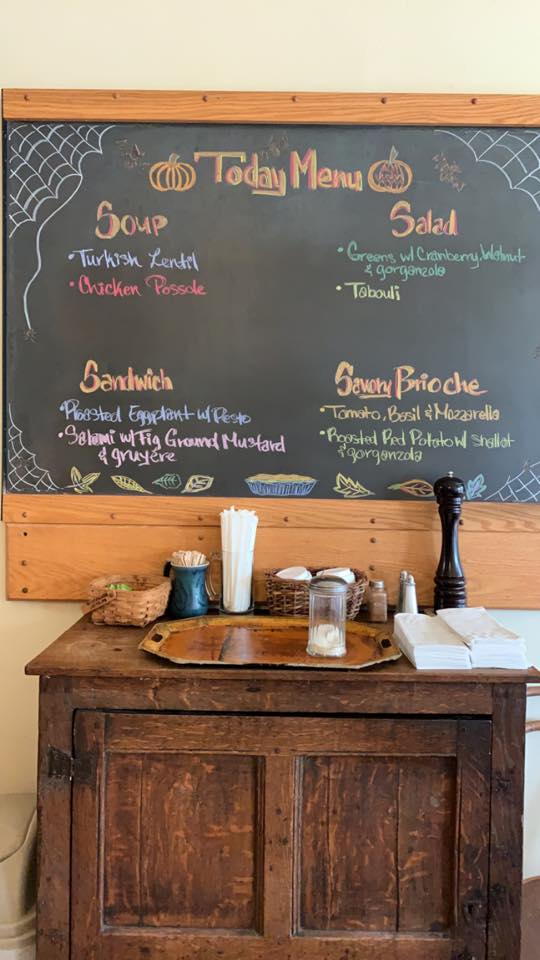 Today Menu
Soup
• Turkish Lentil
• Chicken Possole
Salad
• Greens w/ Cranberry, Walnut
& gorgonzola
• Tabouli
Sandwich
• Roasted Eggplant w/ Pesto
• Salami w/ Fig Ground Mustard
& gruyére
Savory Brioche
• Tomato, Basil & Mozzarella
• Roasted Red Potato w/ Shallot
& gorgonzola